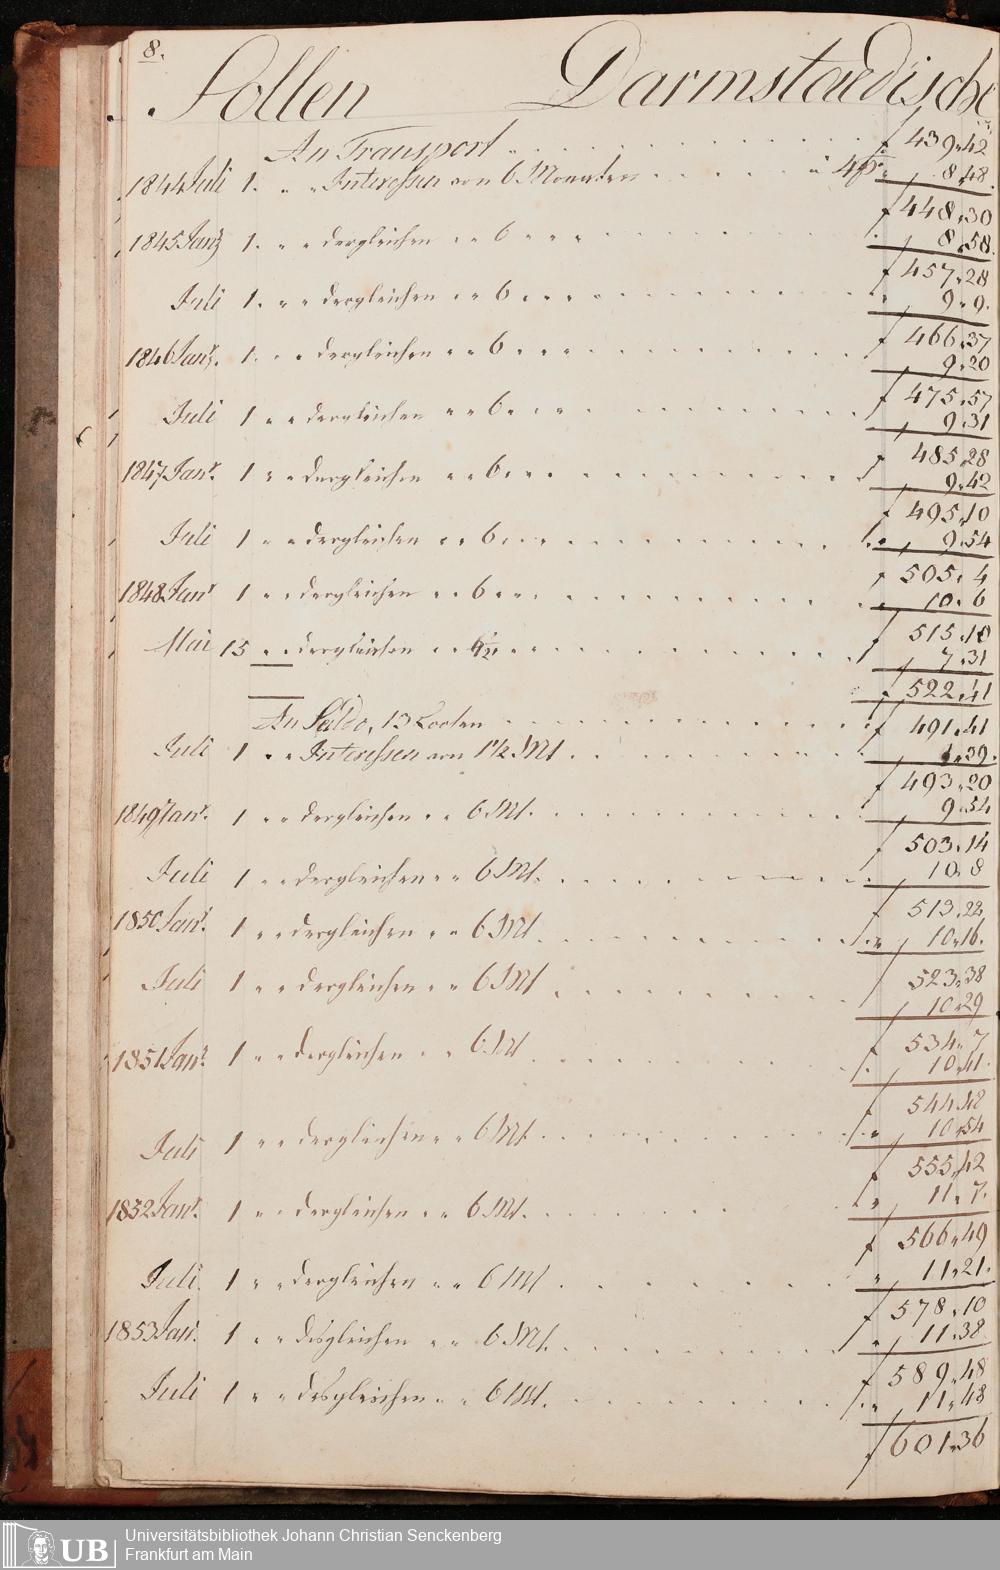 8.
Sollen Darmstaedische
An Transport f 439 " 42
1844 Juli 1. " " Interessen von 6 Monaten à 4 p " 8 " 48.
f 448 " 30
1845 Janr 1. " " dergleichen " " 6 " " " 8 " 58.
f 457 " 28
Juli 1. " " dergleichen " " 6 " " " 9 " 9.
f 466 " 37
1846 Janr. 1. " " dergleichen " " 6 " " " 9 " 20
f 475 " 57
Juli 1 " " dergleichen " " 6 " " " 9 " 31
f 485 " 28
1847 Janr. 1 " " dergleichen " " 6 " " " 9 " 42
f 495 " 10
Juli 1 " " dergleichen " " 6 " " " 9 " 54
f 505 " 4
1848 Janr 1 " " dergleichen " " 6 " " " 10 " 6
f 515 " 10
Mai 15 " " dergleichen " " 4½ " " " 7 " 31
f 522 " 41
An Saldo, 13 Loosen f 491 " 41
Juli 1 " " Interessen von 1½ Mt 1 " 39.
f 493 " 20
1849 Janr. 1 " " dergleichen " " 6 Mt. 9 " 54
f 503 " 14
Juli 1 " " dergleichen " " 6 Mt. 10 " 8
f 513 " 22
1850 Janr. 1 " " dergleichen " " 6 Mt " 10 " 16.
f 523 " 38
Juli 1 " " dergleichen " " 6 Mt 10 " 29
f 534 " 7
1851 Janr. 1 " " dergleichen " " 6 Mt 10 " 41.
f 544 " 48
Juli 1 " " dergleichen " " 6 Mt. " 10 " 54
f 555 " 42
1852 Janr. 1 " " dergleichen " " 6 Mt. " 11 " 7.
f 566 " 49
Juli. 1 " " dergleichen " " 6 Mt " 11 " 21.
f 578 " 10
1853 Janr. 1 " " desgleichen " " 6 Mt. " 11 " 38
f 589 " 48
Juli 1 " " desgleichen " " 6 Mt. " 11 " 48
f 601 " 36
UB Universitätsbibliothek Johann Christian Senckenberg
Frankfurt am Main